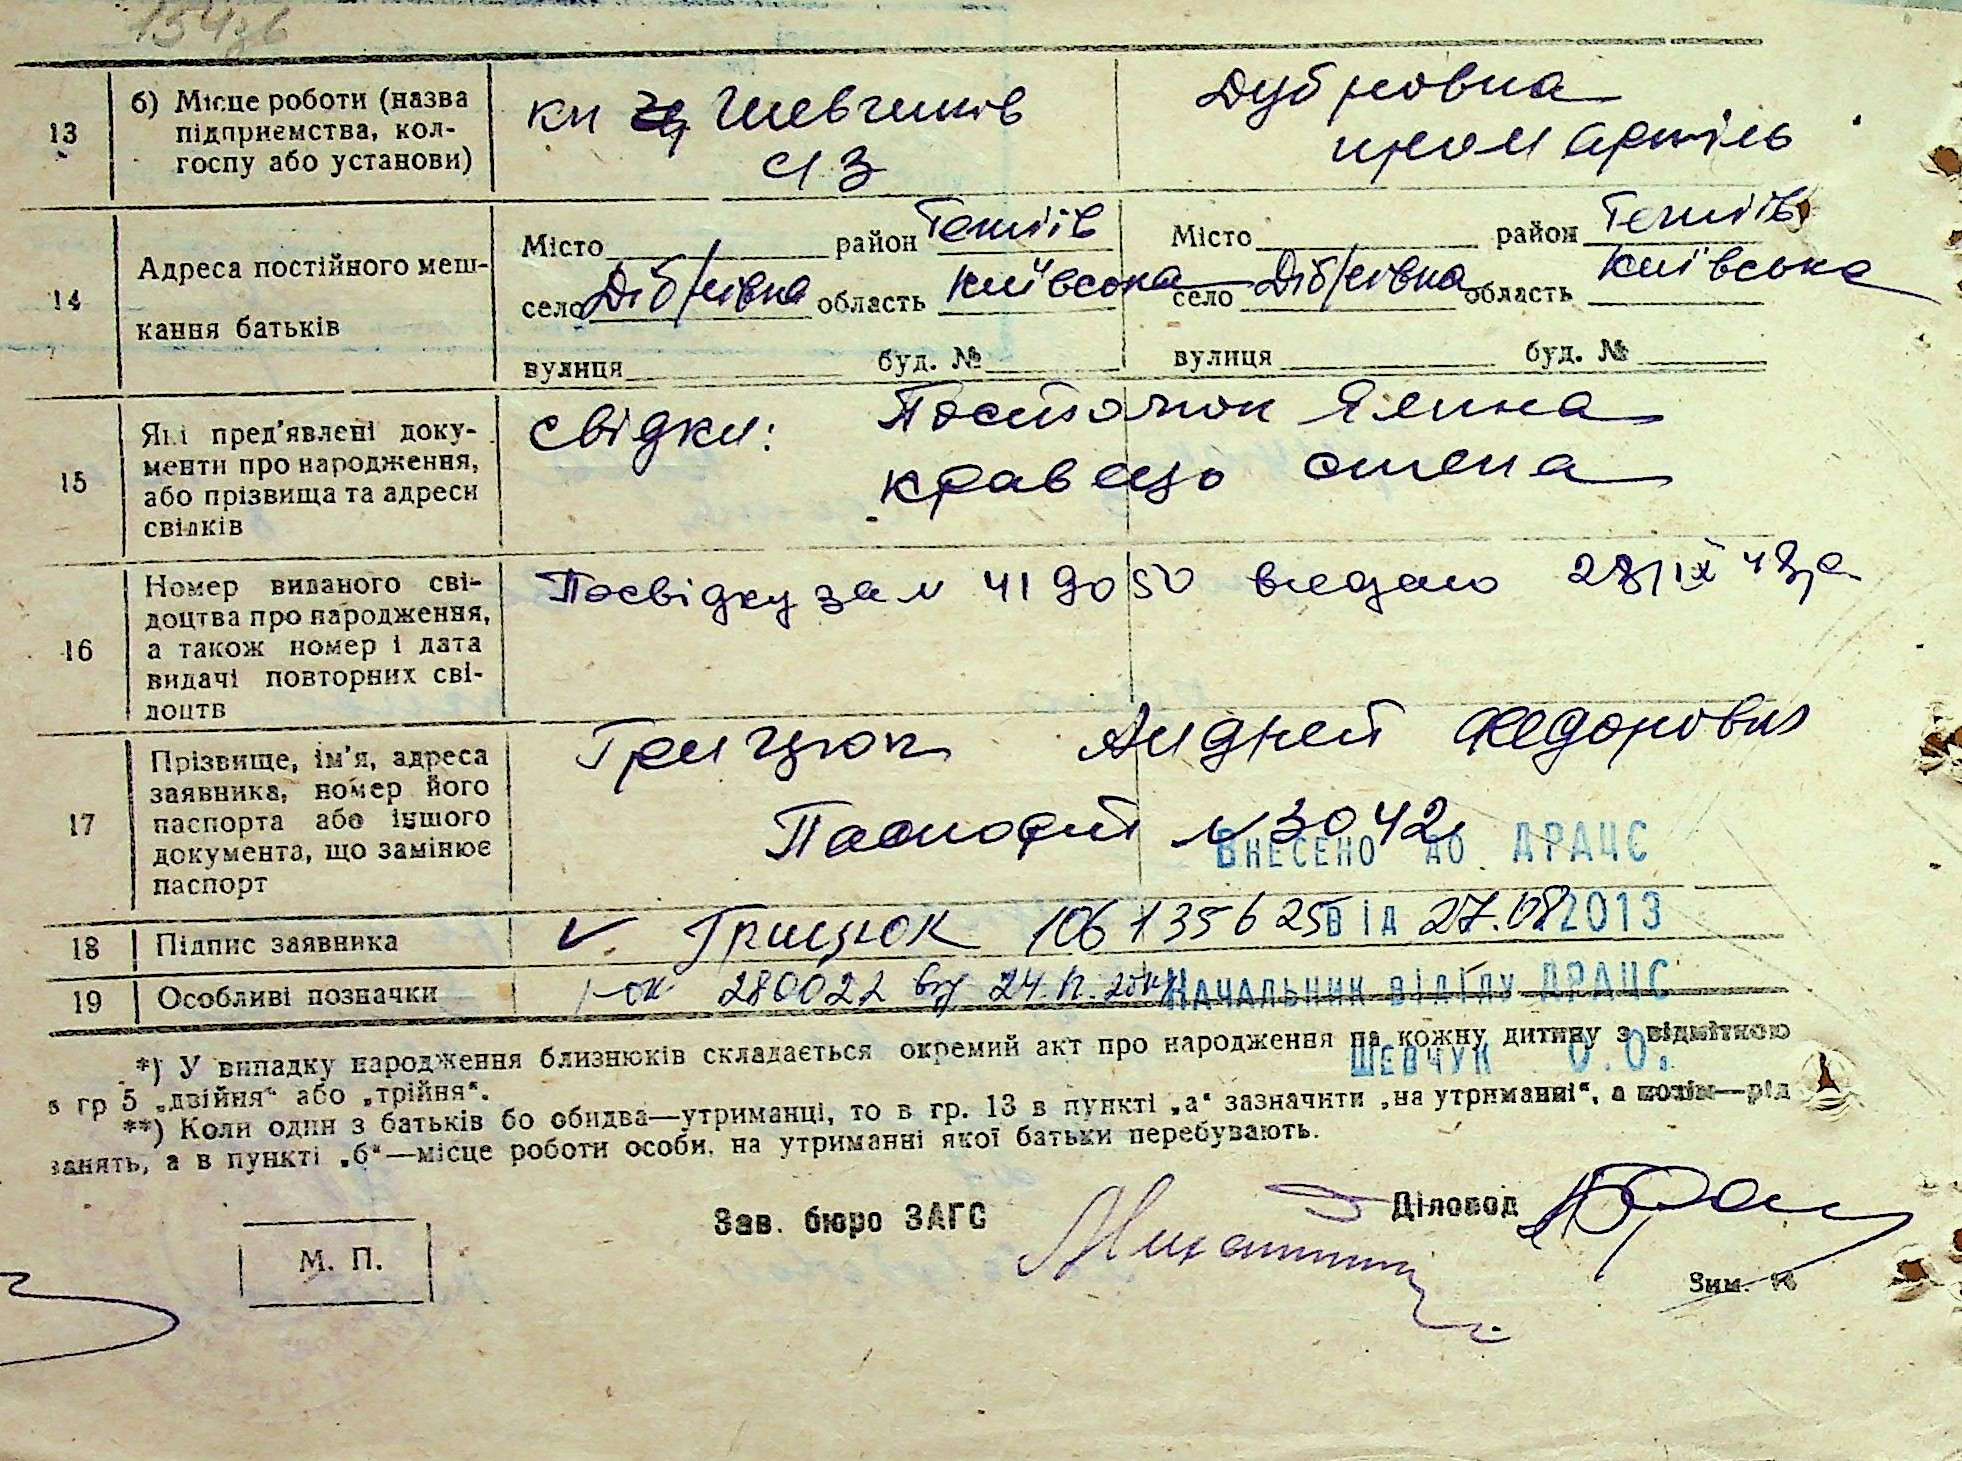 13
б) Місце роботи (назва
підприємства, кол-
госпу або установи)
Дубровна
пром артіль
14
Адреса постійного меш-
кання батьків
Місто район Тетіїв
село Дібрівна область Київська
вулиця буд. №
Місто район Тетіїв
село Дібрівна область Київська
вулиця буд. №
15
Які пред'явлені доку-
менти про народження,
або прізвища та адреси
свідків
свідки:
Ялина
кравець олена
16
Номер виданого сві-
доцтва про народження,
а також номер і дата
видачі повторних сві-
доцтв
Посвідку за № 419050 видано 28/IX 48 р
17
Прізвище, ім'я, адреса
заявника, номер його
паспорта або іншого
документа, що замінює
паспорт
Грицюк Андрей Федорович
Паспорт №3042
Внесено до ДРАЦС
18
Підпис заявника
Грицюк 106135625 від 27.08 2013
19
Особливі позначки
280022 від 24.
Начальник відділу ДРАЦС
Шевчук О.О.
*) У випадку народження близнюків складається окремий акт про народження на кожну дитину з відміткою
в гр 5 „двійня“ або „трійня“.
**) Коли один з батьків бо обидва—утриманці, то в гр. 13 в пункті „а“ зазначити „на утриманні“, а потім—рід
занять, а в пункті „б“—місце роботи особи, на утриманні якої батьки перебувають.
Зав. бюро ЗАГС
Діловод
М. П.
Зим.